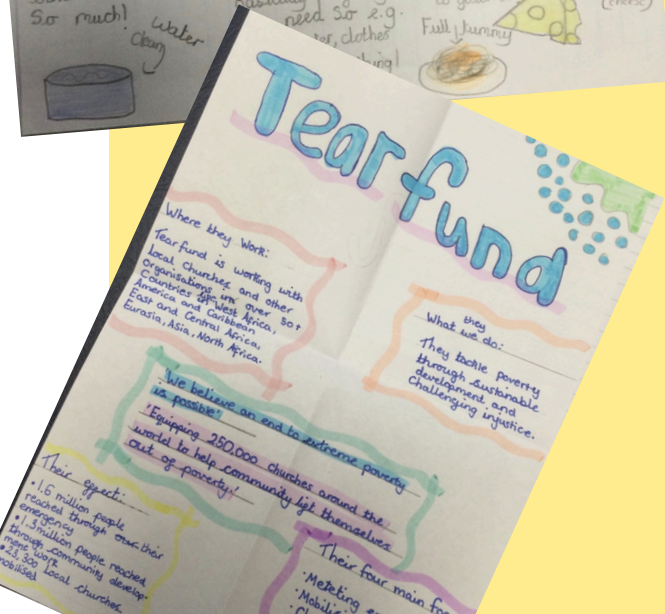 So much!
Water
clean
need so e.g.
clothes
Full, yummy
(cheese)
Tearfund
Where they Work:
Tearfund is working with
local churches and other
organisations in over 50+
Countries in West Africa,
America and Caribbean
East and Central Africa,
Eurasia, Asia, North Africa.
they
What we do:
They tackle poverty
through sustainable
development and
challenging injustice.
'We believe an end to extreme poverty
is possible'
'Equipping 250,000 churches around the
world to help community lift themselves
out of poverty.'
Their effect:
• 1.6 million people
reached through their
emergency
• 1.3 million people reached
through community develop-
ment work
• 23,300 local churches
mobilised
Their four main fo
• Meteting
• Mobilis